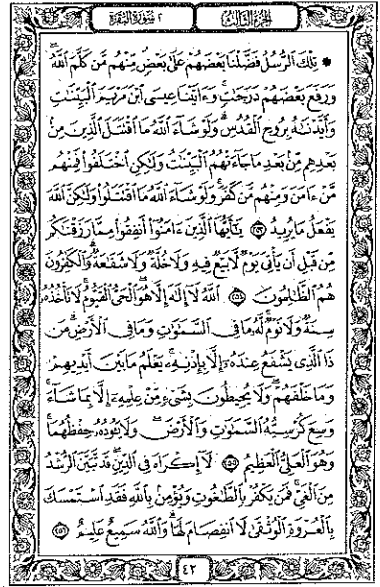 الجزء الثالث
٢ سورة البقرة
۞ تِلْكَ الرُّسُلُ فَضَّلْنَا بَعْضَهُمْ عَلَىٰ بَعْضٍ مِّنْهُم مَّن كَلَّمَ اللَّهُ
وَرَفَعَ بَعْضَهُمْ دَرَجَاتٍ وَءَاتَيْنَا عِيسَى ابْنَ مَرْيَمَ الْبَيِّنَاتِ
وَأَيَّدْنَاهُ بِرُوحِ الْقُدُسِ وَلَوْ شَاءَ اللَّهُ مَا اقْتَتَلَ الَّذِينَ مِن
بَعْدِهِم مِّن بَعْدِ مَا جَاءَتْهُمُ الْبَيِّنَاتُ وَلَٰكِنِ اخْتَلَفُوا فَمِنْهُم
مَّنْ ءَامَنَ وَمِنْهُم مَّن كَفَرَ وَلَوْ شَاءَ اللَّهُ مَا اقْتَتَلُوا وَلَٰكِنَّ اللَّهَ
يَفْعَلُ مَا يُرِيدُ ٢٥٣ يَٰأَيُّهَا الَّذِينَ ءَامَنُوا أَنفِقُوا مِمَّا رَزَقْنَٰكُم
مِّن قَبْلِ أَن يَأْتِيَ يَوْمٌ لَّا بَيْعٌ فِيهِ وَلَا خُلَّةٌ وَلَا شَفَٰعَةٌ وَالْكَٰفِرُونَ
هُمُ الظَّٰلِمُونَ ٢٥٤ اللَّهُ لَا إِلَٰهَ إِلَّا هُوَ الْحَيُّ الْقَيُّومُ لَا تَأْخُذُهُ
سِنَةٌ وَلَا نَوْمٌ لَّهُ مَا فِي السَّمَٰوَٰتِ وَمَا فِي الْأَرْضِ مَن
ذَا الَّذِي يَشْفَعُ عِندَهُ إِلَّا بِإِذْنِهِ يَعْلَمُ مَا بَيْنَ أَيْدِيهِمْ
وَمَا خَلْفَهُمْ وَلَا يُحِيطُونَ بِشَيْءٍ مِّنْ عِلْمِهِ إِلَّا بِمَا شَاءَ
وَسِعَ كُرْسِيُّهُ السَّمَٰوَٰتِ وَالْأَرْضَ وَلَا يَـُٔودُهُ حِفْظُهُمَا
وَهُوَ الْعَلِيُّ الْعَظِيمُ ٢٥٥ لَا إِكْرَاهَ فِي الدِّينِ قَد تَّبَيَّنَ الرُّشْدُ
مِنَ الْغَيِّ فَمَن يَكْفُرْ بِالطَّٰغُوتِ وَيُؤْمِن بِاللَّهِ فَقَدِ اسْتَمْسَكَ
بِالْعُرْوَةِ الْوُثْقَىٰ لَا انفِصَامَ لَهَا وَاللَّهُ سَمِيعٌ عَلِيمٌ ٢٥٦
٤٢